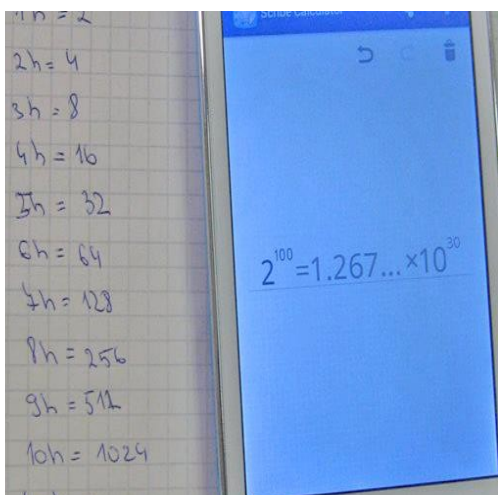 1h = 2
2h = 4
3h = 8
4h = 16
5h = 32
6h = 64
7h = 128
8h = 256
9h = 512
10h = 1024
Scribe Calculator
2^100=1.267...×10^30